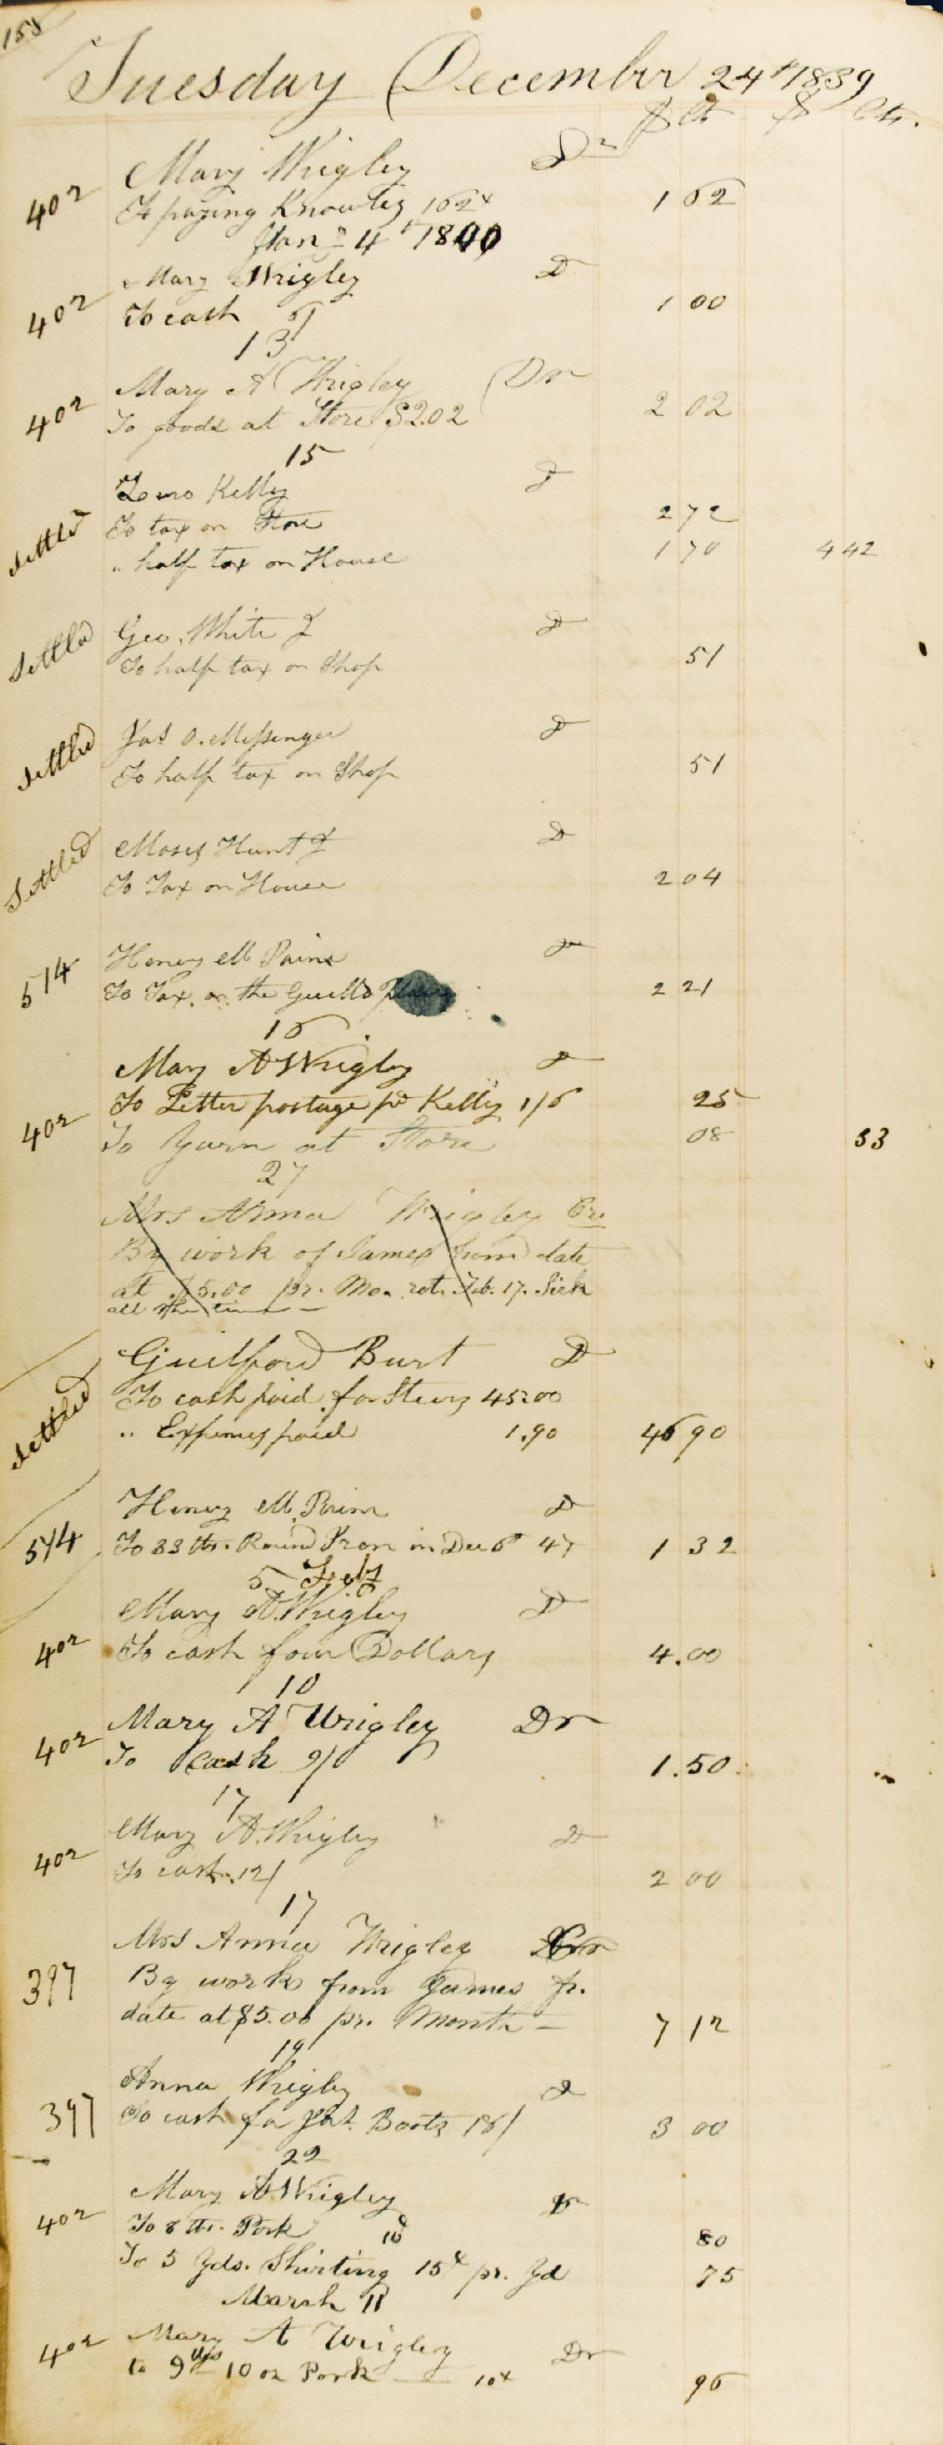 158
Tuesday December 24th 1839
$ Ct $ Cts.
Mary Wrigley Dr
402 To paying Knowles 162x 1 62
Jany 4th 1840
Mary Wrigley D
402 To cash 6/ 1 00
13
Mary A Wrigley Dr
402 To goods at Store $2.02 2 02
15
Zeno Kelly D
Settld To tax on Store 2 72
" half tax on House 1 70 4 42
Settld Geo. White 2 D
To half tax on Shop 51
Settled Jas O. Messenger D
To half tax on Shop 51
Settled Moses Hunt 2 D
To Tax on House 2 04
514 Henry M Paine D
To Tax on the Guild place 2 21
16
Mary A Wrigley D
402 To Letter postage pd Kelly 1/6 25
To Yarn at Store 08 33
27
Mrs Anna Wrigley Cr.
By work of James from date
at $5.00 pr. Mo. ret. Feb. 17. Sick
all the time
Guilford Burt D
Settled To cash paid for Steers 45.00
" Expenses paid 1.90 46 90
Henry M. Paine D
514 To 33 lbs. Round Iron in Dec 6 4x 1 32
5 Feby
Mary A. Wrigley D
402 To cash four Dollars 4.00
10
Mary A Wrigley Dr
402 To Cash 9/ 1.50
17
Mary A. Wrigley D
402 To cash 12/ 2 00
17
Mrs Anna Wrigley Cr
397 By work from James fr.
date at $5.00 pr. Month 7 12
19
Anna Wrigley D
397 To cash for Jas. Boots 18/ 3 00
22
Mary A Wrigley Dr
402 To 8 lbs. Pork 10 80
To 5 Yds. Shirting 15x pr. Yd 75
March 11
402 Mary A Wrigley Dr
to 9 lbs 10 oz Pork 10x 96